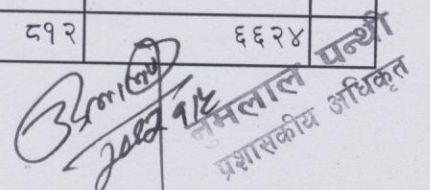 ८१२ ६६२४
नुमलाल पन्थी
प्रशासकीय अधिकृत